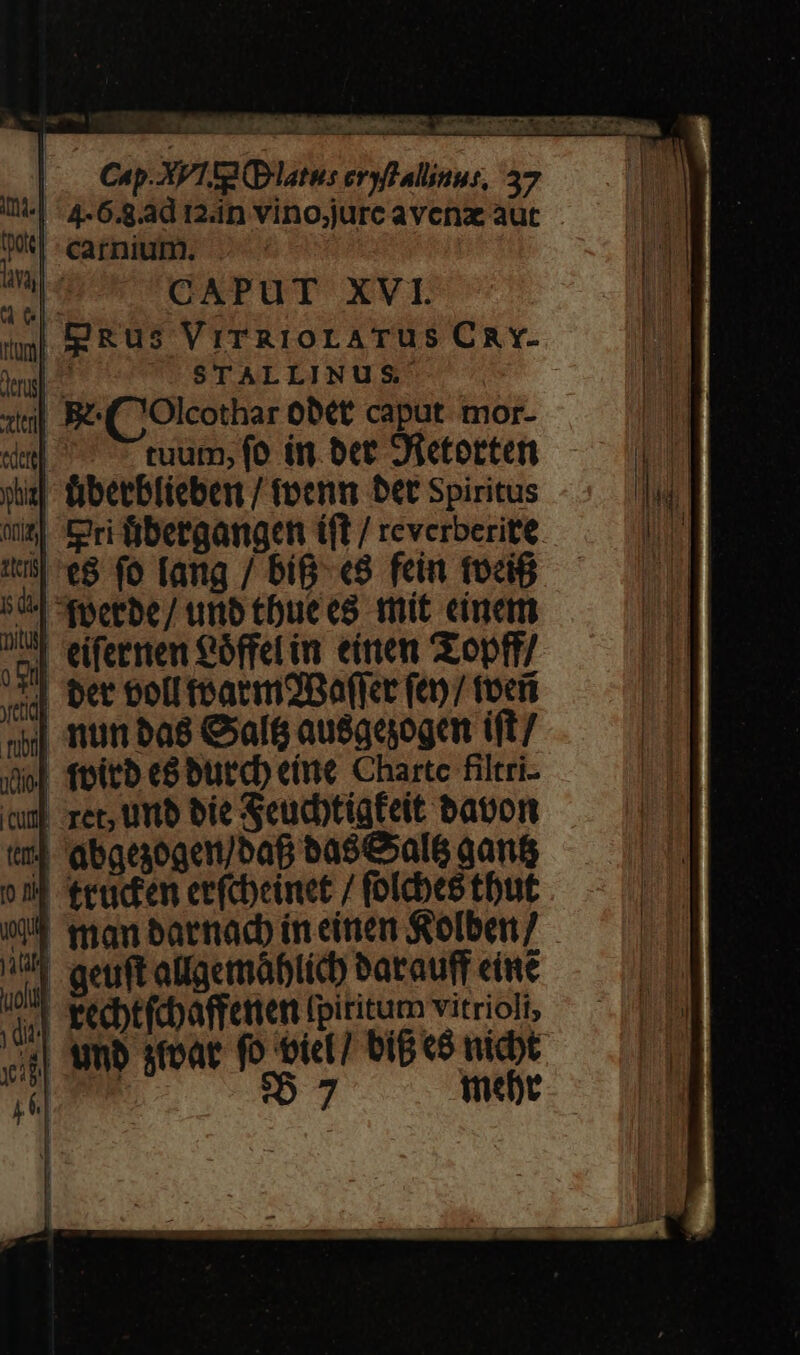 Cap. XVI. 🜿 ⦶latus crystallinus. 37
4.6.8.ad 12.in vino, jure avenæ aut
carnium.
CAPUT XVI.
🜿RUS VITRIOLATUS CRY-
STALLINUS.
℞. COlcothar oder caput mor-
tuum, ſo in der Retorten
uͤberblieben / wenn der Spiritus
🜿ri uͤbergangen iſt / reverberire
es ſo lang / biß es fein weiß
werde / und thue es mit einem
eiſernen Loͤffel in einen Topff /
der voll warm Waſſer ſey / weñ
nun das Saltz ausgezogen iſt /
wird es durch eine Charte filtri-
ret, und die Feuchtigkeit davon
abgezogen / daß das Saltz gantz
trucken erſcheinet / ſolches thut
man darnach in einen Kolben /
geuſt allgemaͤhlich darauff einẽ
rechtſchaffenen ſpiritum vitrioli,
und zwar ſo viel / biß es nicht
B 7 mehr